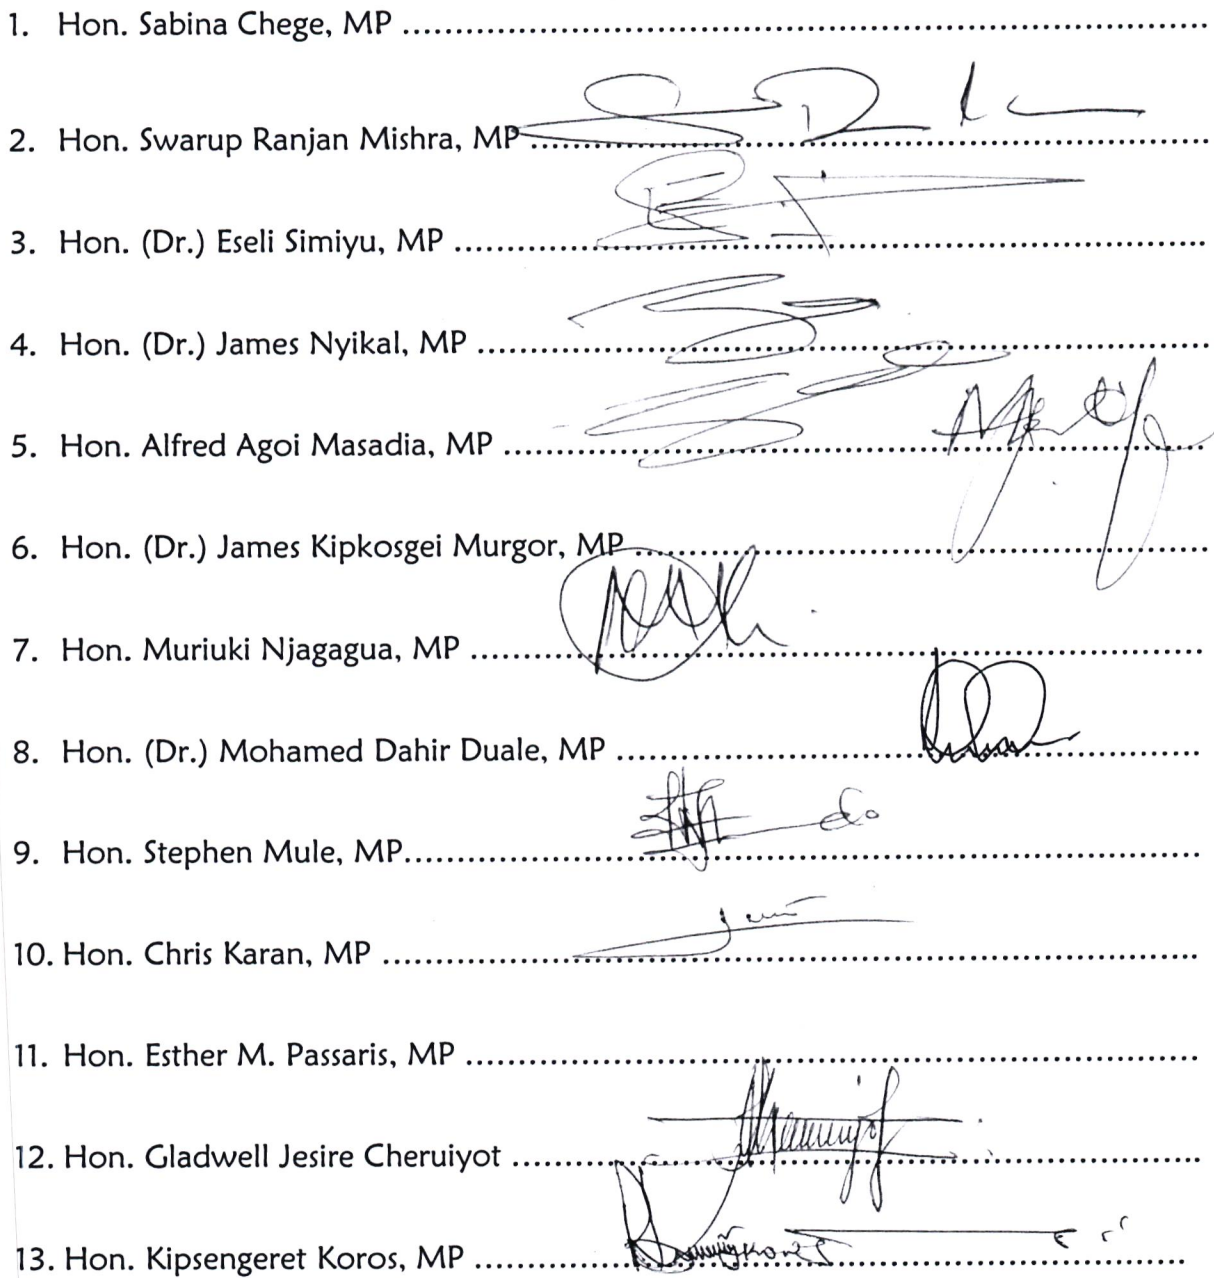 1. Hon. Sabina Chege, MP ........................................
2. Hon. Swarup Ranjan Mishra, MP ........................................
3. Hon. (Dr.) Eseli Simiyu, MP ........................................
4. Hon. (Dr.) James Nyikal, MP ........................................
5. Hon. Alfred Agoi Masadia, MP ........................................
6. Hon. (Dr.) James Kipkosgei Murgor, MP ........................................
7. Hon. Muriuki Njagagua, MP ........................................
8. Hon. (Dr.) Mohamed Dahir Duale, MP ........................................
9. Hon. Stephen Mule, MP........................................
10. Hon. Chris Karan, MP ........................................
11. Hon. Esther M. Passaris, MP ........................................
12. Hon. Gladwell Jesire Cheruiyot ........................................
13. Hon. Kipsengeret Koros, MP ........................................